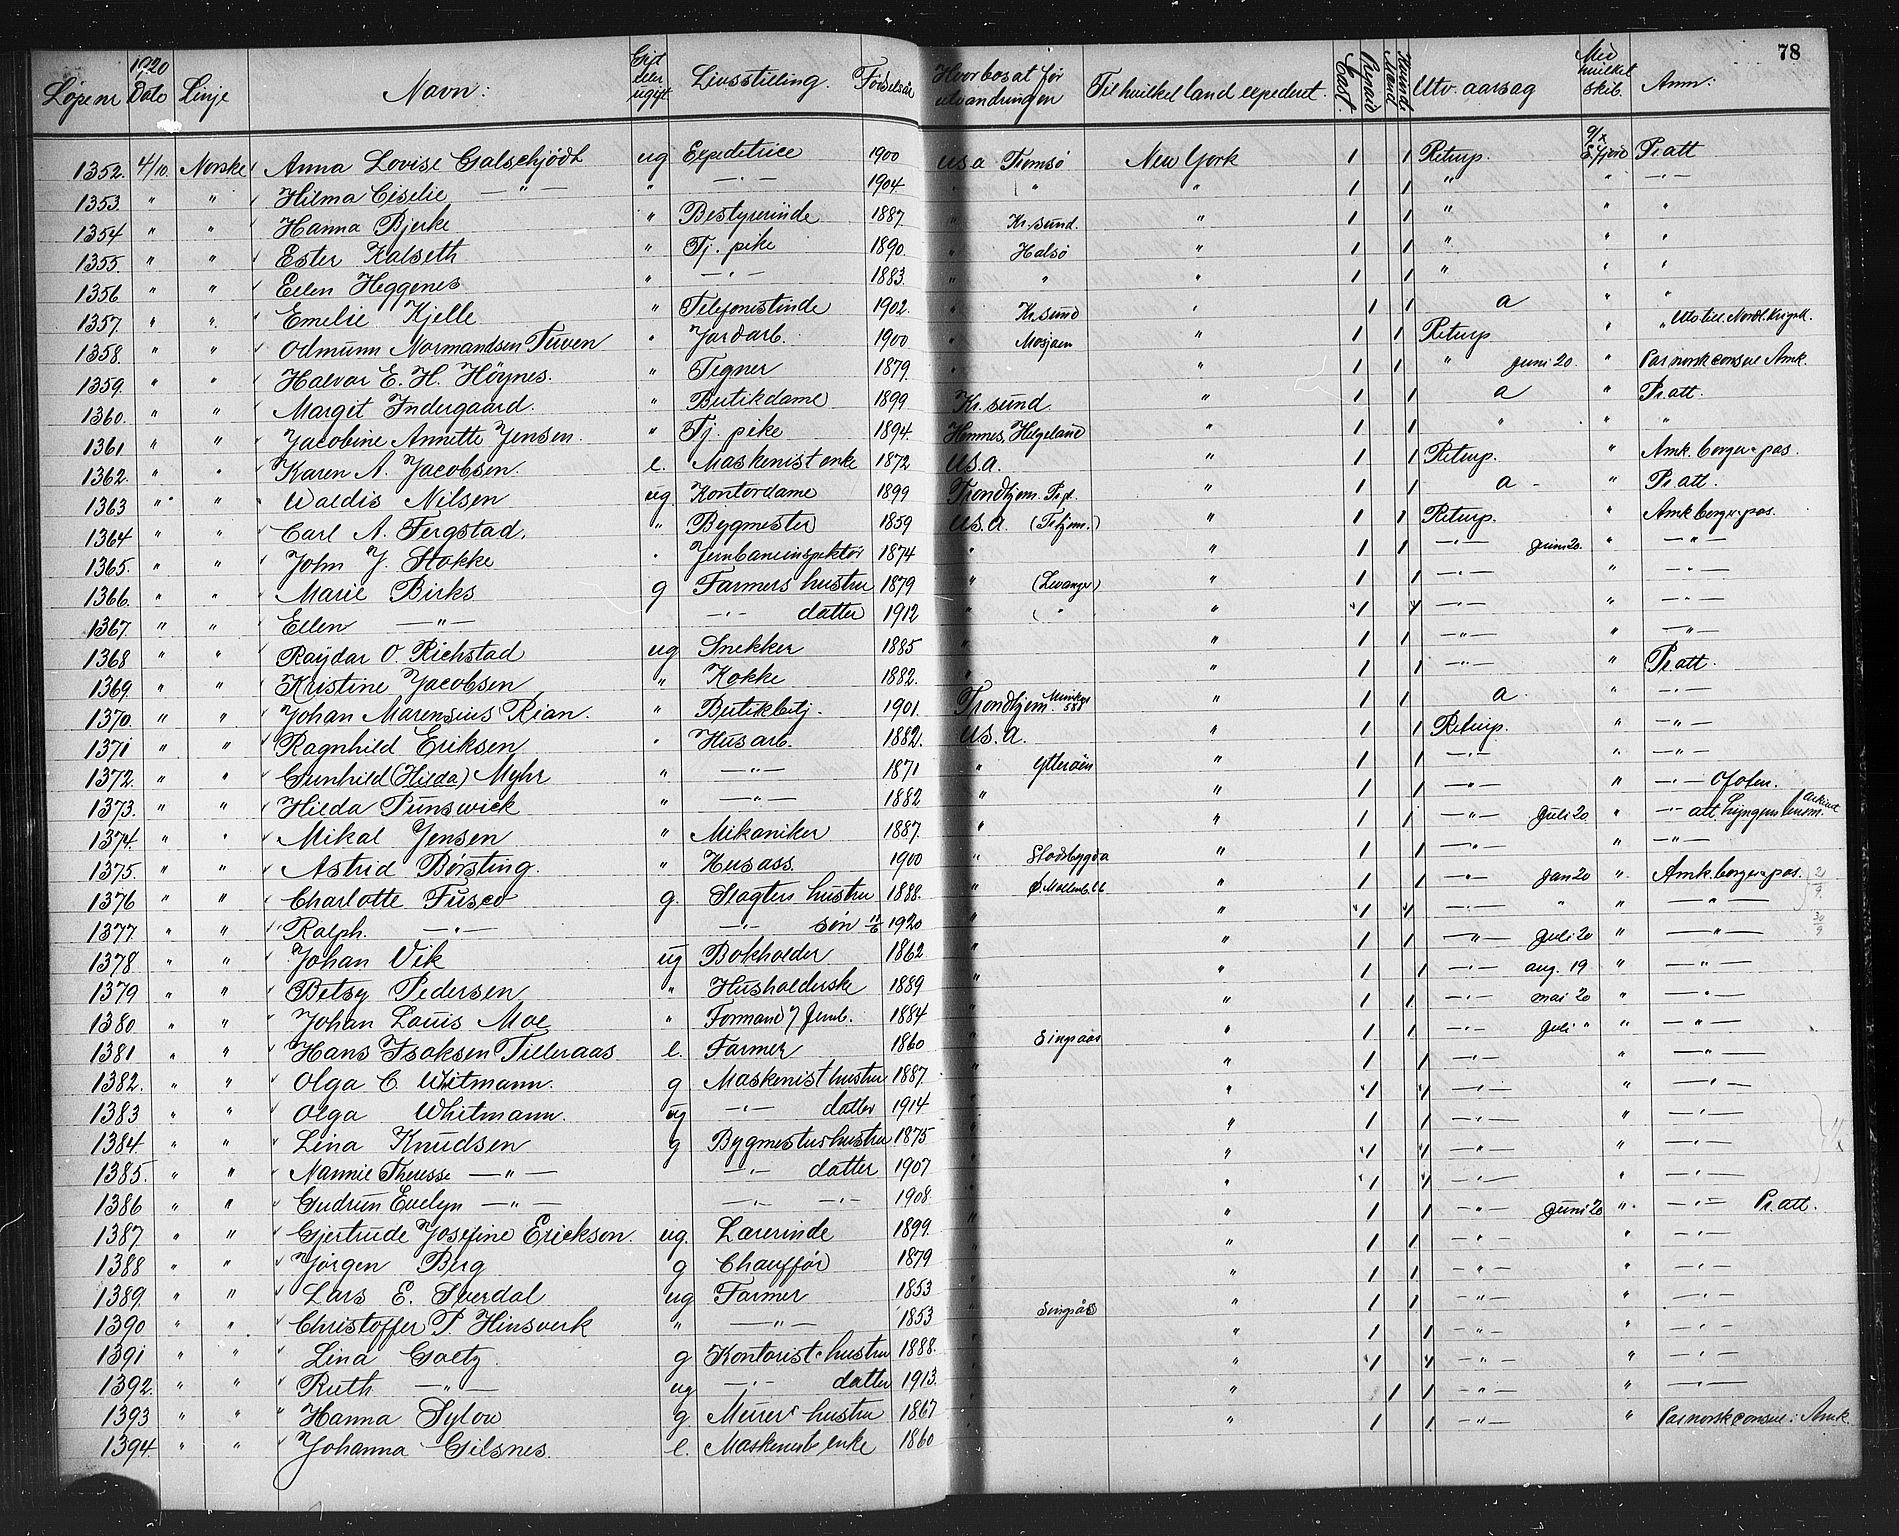 78
Løpenr 1920 Dato Linje Navn: Gift eller ugift Livsstilling. Fødselsår Hvor bosat før utvandringen Til hvilket land expederet. Utv. aarsag Med hvilket skib. Anm:
1352. 4/10. Norske Anna Lovise Galschjødt ug Expeditrice 1900 U.S.A Tromsø New York 1 1 Returp. 9/X Pr att
1353. " " Hilma Giselie — " — " — " — 1904. " " 1 1 " " — " —
1354 " " Hanna Bjerke " Bestyrerinde 1887. " Kr.sund. " 1 1 " " "
1355. " " Ester Kalseth " Tj. pike 1890. " Halsø " 1 1 " " "
1356 " " Ellen Heggenes " — " — 1883. " " " 1 1 " " "
1357. " " Emelie Kjelle " Telefonistinde 1902. " Kr.sund " 1 1 a " "
1358. " " Odmunn Normandsen Tuven " Jordarb. 1900 " Mosjøen " 1 1 Returp " "
1359. " " Halvar E. H. Höynes. " Tegner 1879. " " 1 1 " Juni 20. " Pas norsk consul Amk.
1360. " " Margit Indergaard. " Butikdame 1899 Kr.sund. " 1 1 a " Pr att.
1361 " " Jacobine Annette Jensen. " Tj. pike 1894. Hemnes, Helgeland " 1 1 " " "
1362. " " Karen A. Jacobsen. e. Maskenist enke 1872 U.S.A. " 1 1 Returp. " Amk. borger pas.
1363 " " Waldis Nilsen ug Kontordame 1899 Trondhjem. " 1 1 a - " Pr att.
1364 " " Carl A. Fergstad. " Bygmester 1859 U.S.A. " 1 1 Returp. " Amk borger pas.
1365. " " John J. Stokke " Jernbaneinspektør 1874 " " 1 1 — " — Juni 20. " — " —
1366. " " Marie Birks g Farmers hustru 1879 " (Levanger) " 1 1 — " — " — " —
1367. " " Ellen — " — — " — datter 1912 " ( " " 1 1 — " — " — " —
1368 " " Raydar O. Richstad ug Snekker 1885 " " 1 1 — " — " — " —
1369. " " Kristine Jacobsen " Kokke 1882. " " 1 1 — " — " Pr att.
1370. " " Johan Marensius Rian. " Butikbetj. 1901. Trondhjem. " 1 1 a. " — " —
1371 " " Ragnhild Eriksen " Husarb. 1882. U.S.A. " 1 1 Returp. " — " —
1372. " " Gunhild (Hilda) Myhr " — " — 1871 " Ytterøen " 1 1 — " — " — " —
1373. " " Hilda Punswick " — " — 1882 " " 1 1 — " — " — " — Ofoten.
1374. " " Mikal Jensen " Mikaniker 1887. " " 1 1 — " — Juli 20. " — " — att. Lyngens
1375. " " Astrid Børsting. " Husass. 1900 " Stadsbygda " 1 1 — " — " — " —
1376 " " Charlotte Fusco g. Slagters hustru 1888. " " 1 1 — " — Jan 20 " Amk. borger pas.
1377. " " Ralph. — " — — " — søn 1920 " " 1 1 — " — " " — " —
1378 " " Johan Vik ug Bokholder 1862. " " 1 1 — " — Juli 20 " — " —
1379 " " Betsy Pedersen " Husholderske 1889 " " 1 1 — " — aug. 19 " — " —
1380 " " Johan Louis Moe " Formand / Jernb. 1884 " " 1 1 — " — mai 20 " — " —
1381 " " Hans Isaksen Tilleraas e. Farmer 1860 " Singsaas " 1 1 — " — Juli " " — " —
1382. " " Olga C. Whitmann. g Maskenist hustru 1887. " " 1 1 — " — " — " —
1383 " " Olga Whitmann. ug — " — datter 1914 " " 1 1 — " — " — " —
1384. " " Lina Knudsen g Bygmester hustru 1875 " " 1 1 — " — " — " —
1385. " " Nannie Theresse — " — — " — datter 1907 " " 1 1 — " — " — " —
1386 " " Gudrun Evelyn — " — — " — — " — 1908. " " 1 1 — " — " — " —
1387 " " Gjertrude Josefine Erickson. ug. Lærerinde 1899. " " 1 1 — " — Juni 20 " — " — Pr. att.
1388 " " Jørgen Berg g Chauffør 1879 " " 1 1 — " — " — " —
1389. " " Lars E. Sverdal ug Farmer 1853 " " 1 1 — " — " — " —
1390 " " Christoffer P. Hinsverk " — " — 1853 " Singsås " 1 1 — " — " — " —
1391 " " Lina Goetz. g Kontorist hustru 1888. " " 1 1 — " — " — " —
1392. " " Ruth — " — ug — " — datter 1913. " " 1 1 — " — " — " —
1393 " " Hanna Sylow g Murer hustru 1867 " " 1 1 — " — " — " —
1394. " " Johanna Gilsnes. e. Maskenist enke 1860 " " 1 1 — " — " Pas norsk consul: Amk.